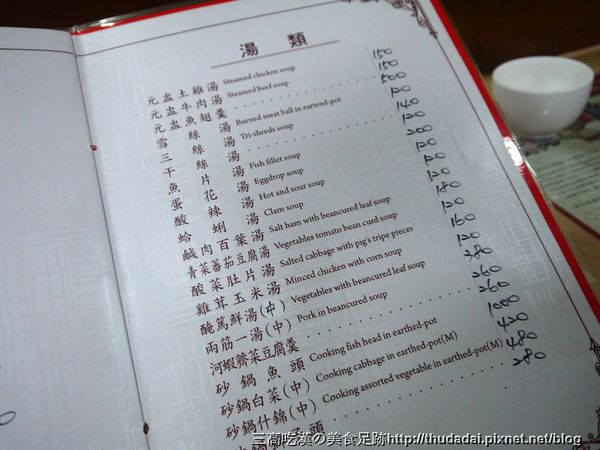 湯類
元盅土雞湯 Steamed chicken soup 150
元盅牛肉湯 Steamed beef soup 150
元盅魚翅羹 500
雪絲湯 Burned meat ball in eartend-pot 120
三絲湯 Tri-shreds soup 140
干絲湯 120
魚片湯 Fish fillet soup 200
蛋花湯 Eggdrop soup 120
酸辣湯 Hot and sour soup 120
蛤蜊湯 Clam soup 120
鹹肉百葉湯 Salt ham with beancured leaf soup 180
青菜蕃茄豆腐湯 Vegetables tomato bean curd soup 120
酸菜肚片湯 Salted cabbage with pig's tripe pieces 160
雞茸玉米湯 Minced chicken with corn soup 120
醃篤鮮湯(中) Vegetables with beancured leaf soup 280
兩筋一湯(中) Pork in beancured soup 260
河蝦薺菜豆腐羹 260
砂鍋魚頭 Cooking fish head in earthed-pot 1000
砂鍋白菜(中) Cooking cabbage in earthed-pot(M) 420
砂鍋什錦(中) Cooking assorted vegetable in earthed-pot(M) 480
子頭 280
三高吃漢の美食足跡http://thudadai.pixnet.net/blog